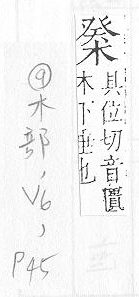 具位切音匱
木下垂也
⑨木部，V6，
P45